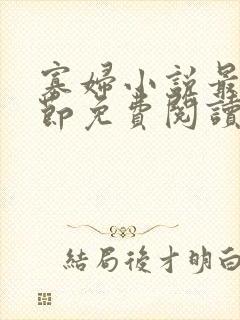 寡婦小説最
節免費閱讀
結局後才明白